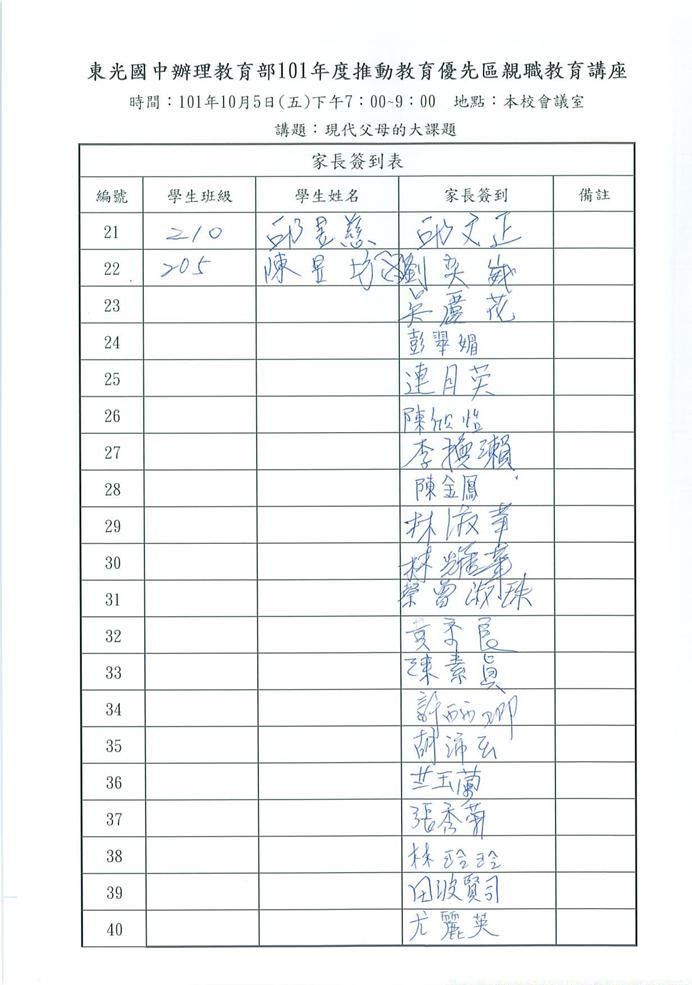 東光國中辦理教育部101年度推動教育優先區親職教育講座
時間：101年10月5日(五)下午7：00~9：00 地點：本校會議室
講題：現代父母的大課題
家長簽到表
編號 學生班級 學生姓名 家長簽到 備註
21 210 邱昱慈 邱文正
22 205 陳昱坊 劉奕崴
23 吳慶花
24 彭翠媚
25 連月英
26 陳欣怡
27 李換瀨
28 陳金鳳
29 林淑華
30 林耀華
31 蔡曾淑珠
32 黃秀良
33 陳素貞
34 許 卿
35 胡沛玄
36 玉蘭
37 張秀菊
38 林玲玲
39 田波賢司
40 尤麗英